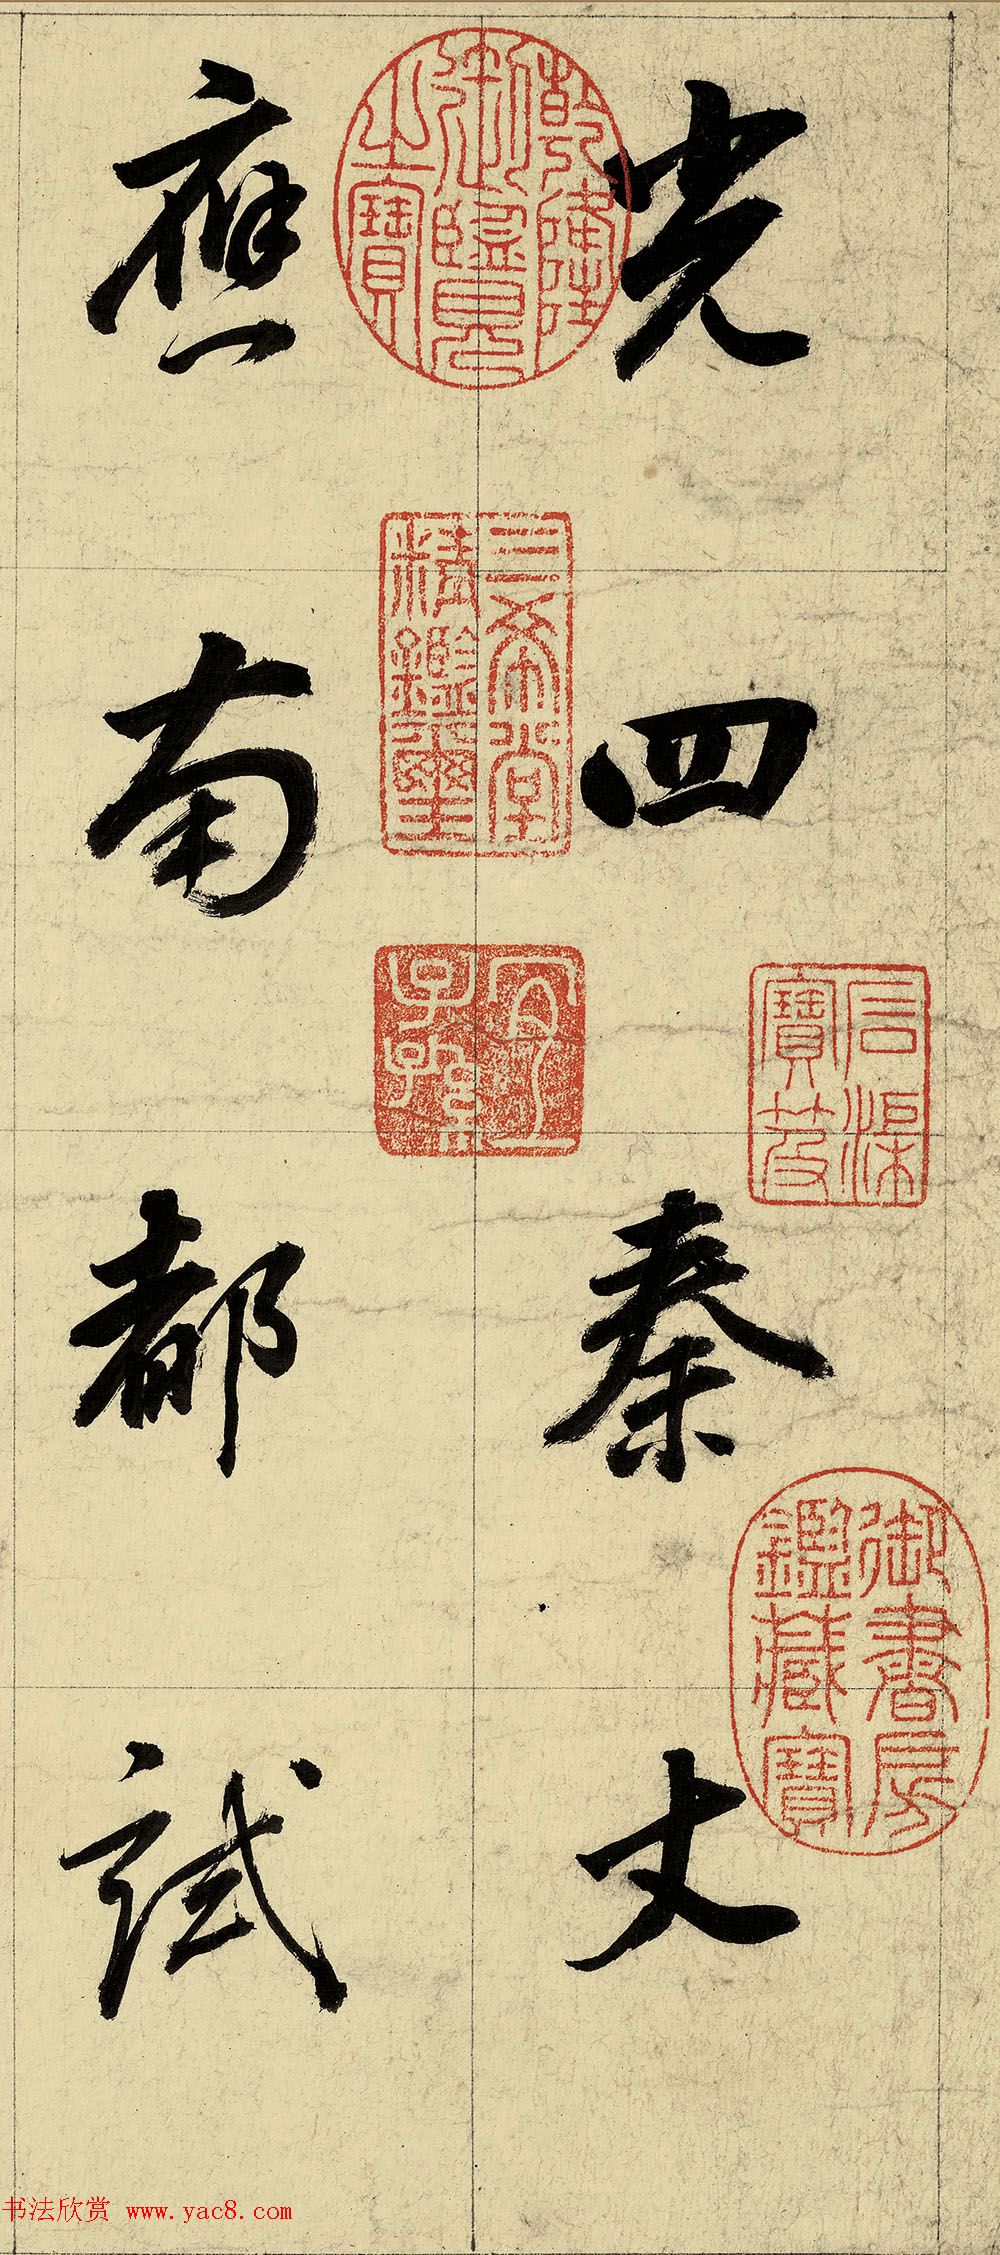 光四秦丈
應南都試
乾隆
御覽
之寶
三希堂
精鑑璽
宜
子孫
石渠
寶笈
御書房
鑑藏寶
书法欣赏 www.yac8.com